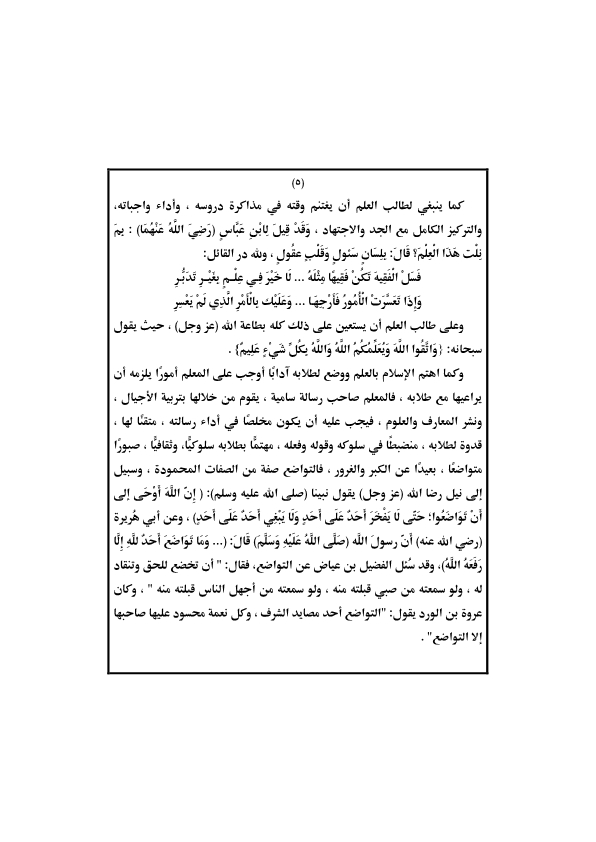 (٥)
كما ينبغي لطالب العلم أن يغتنم وقته في مذاكرة دروسه ، وأداء واجباته،
والتركيز الكامل مع الجد والاجتهاد ، وَقَدْ قِيلَ لِابْنِ عَبَّاسٍ (رَضِيَ اللَّهُ عَنْهُمَا) : بِمَ
نِلْت هَذَا الْعِلْمَ؟ قَالَ: بِلِسَانٍ سَئولٍ وَقَلْبٍ عقُولٍ ، ولله در القائل:
فَسَلْ الْفَقِيهَ تَكُنْ فَقِيهًا مِثْلَهُ ... لَا خَيْرَ فِي عِلْمٍ بِغَيْرِ تَدَبُّرِ
وَإِذَا تَعَسَّرَتْ الْأُمُورُ فَأَرْجِهَا ... وَعَلَيْك بِالْأَمْرِ الَّذِي لَمْ يَعْسِرِ
وعلى طالب العلم أن يستعين على ذلك كله بطاعة الله (عز وجل) ، حيث يقول
سبحانه: {وَاتَّقُوا اللَّهَ وَيُعَلِّمُكُمُ اللَّهُ وَاللَّهُ بِكُلِّ شَيْءٍ عَلِيمٌ} .
وكما اهتم الإسلام بالعلم ووضع لطلابه آدابًا أوجب على المعلم أمورًا يلزمه أن
يراعيها مع طلابه ، فالمعلم صاحب رسالة سامية ، يقوم من خلالها بتربية الأجيال ،
ونشر المعارف والعلوم ، فيجب عليه أن يكون مخلصًا في أداء رسالته ، متقنًا لها ،
قدوة لطلابه ، منضبطًا في سلوكه وقوله وفعله ، مهتمًّا بطلابه سلوكيًّا، وثقافيًّا ، صبورًا
متواضعًا ، بعيدًا عن الكبر والغرور ، فالتواضع صفة من الصفات المحمودة ، وسبيل
إلى نيل رضا الله (عز وجل) يقول نبينا (صلى الله عليه وسلم): ( إِنّ اللَّهَ أَوْحَى إلى
أَنْ تَوَاضَعُوا؛ حَتّى لَا يَفْخَرَ أَحَدٌ عَلَى أَحَدٍ وَلَا يَبْغِي أَحَدٌ عَلَى أَحَدٍ) ، وعن أبي هُريرة
(رضي الله عنه) أنّ رسولَ اللَّه (صَلَّى اللَّهُ عَلَيْهِ وَسَلَّمَ) قَالَ: (... وَمَا تَوَاضَعَ أَحَدٌ للَّهِ إِلَّا
رَفَعَهُ اللَّهُ)، وقد سُئل الفضيل بن عياض عن التواضع، فقال: " أن تخضع للحق وتنقاد
له ، ولو سمعته من صبي قبلته منه ، ولو سمعته من أجهل الناس قبلته منه " ، وكان
عروة بن الورد يقول: "التواضع أحد مصايد الشرف ، وكل نعمة محسود عليها صاحبها
إلا التواضع" .